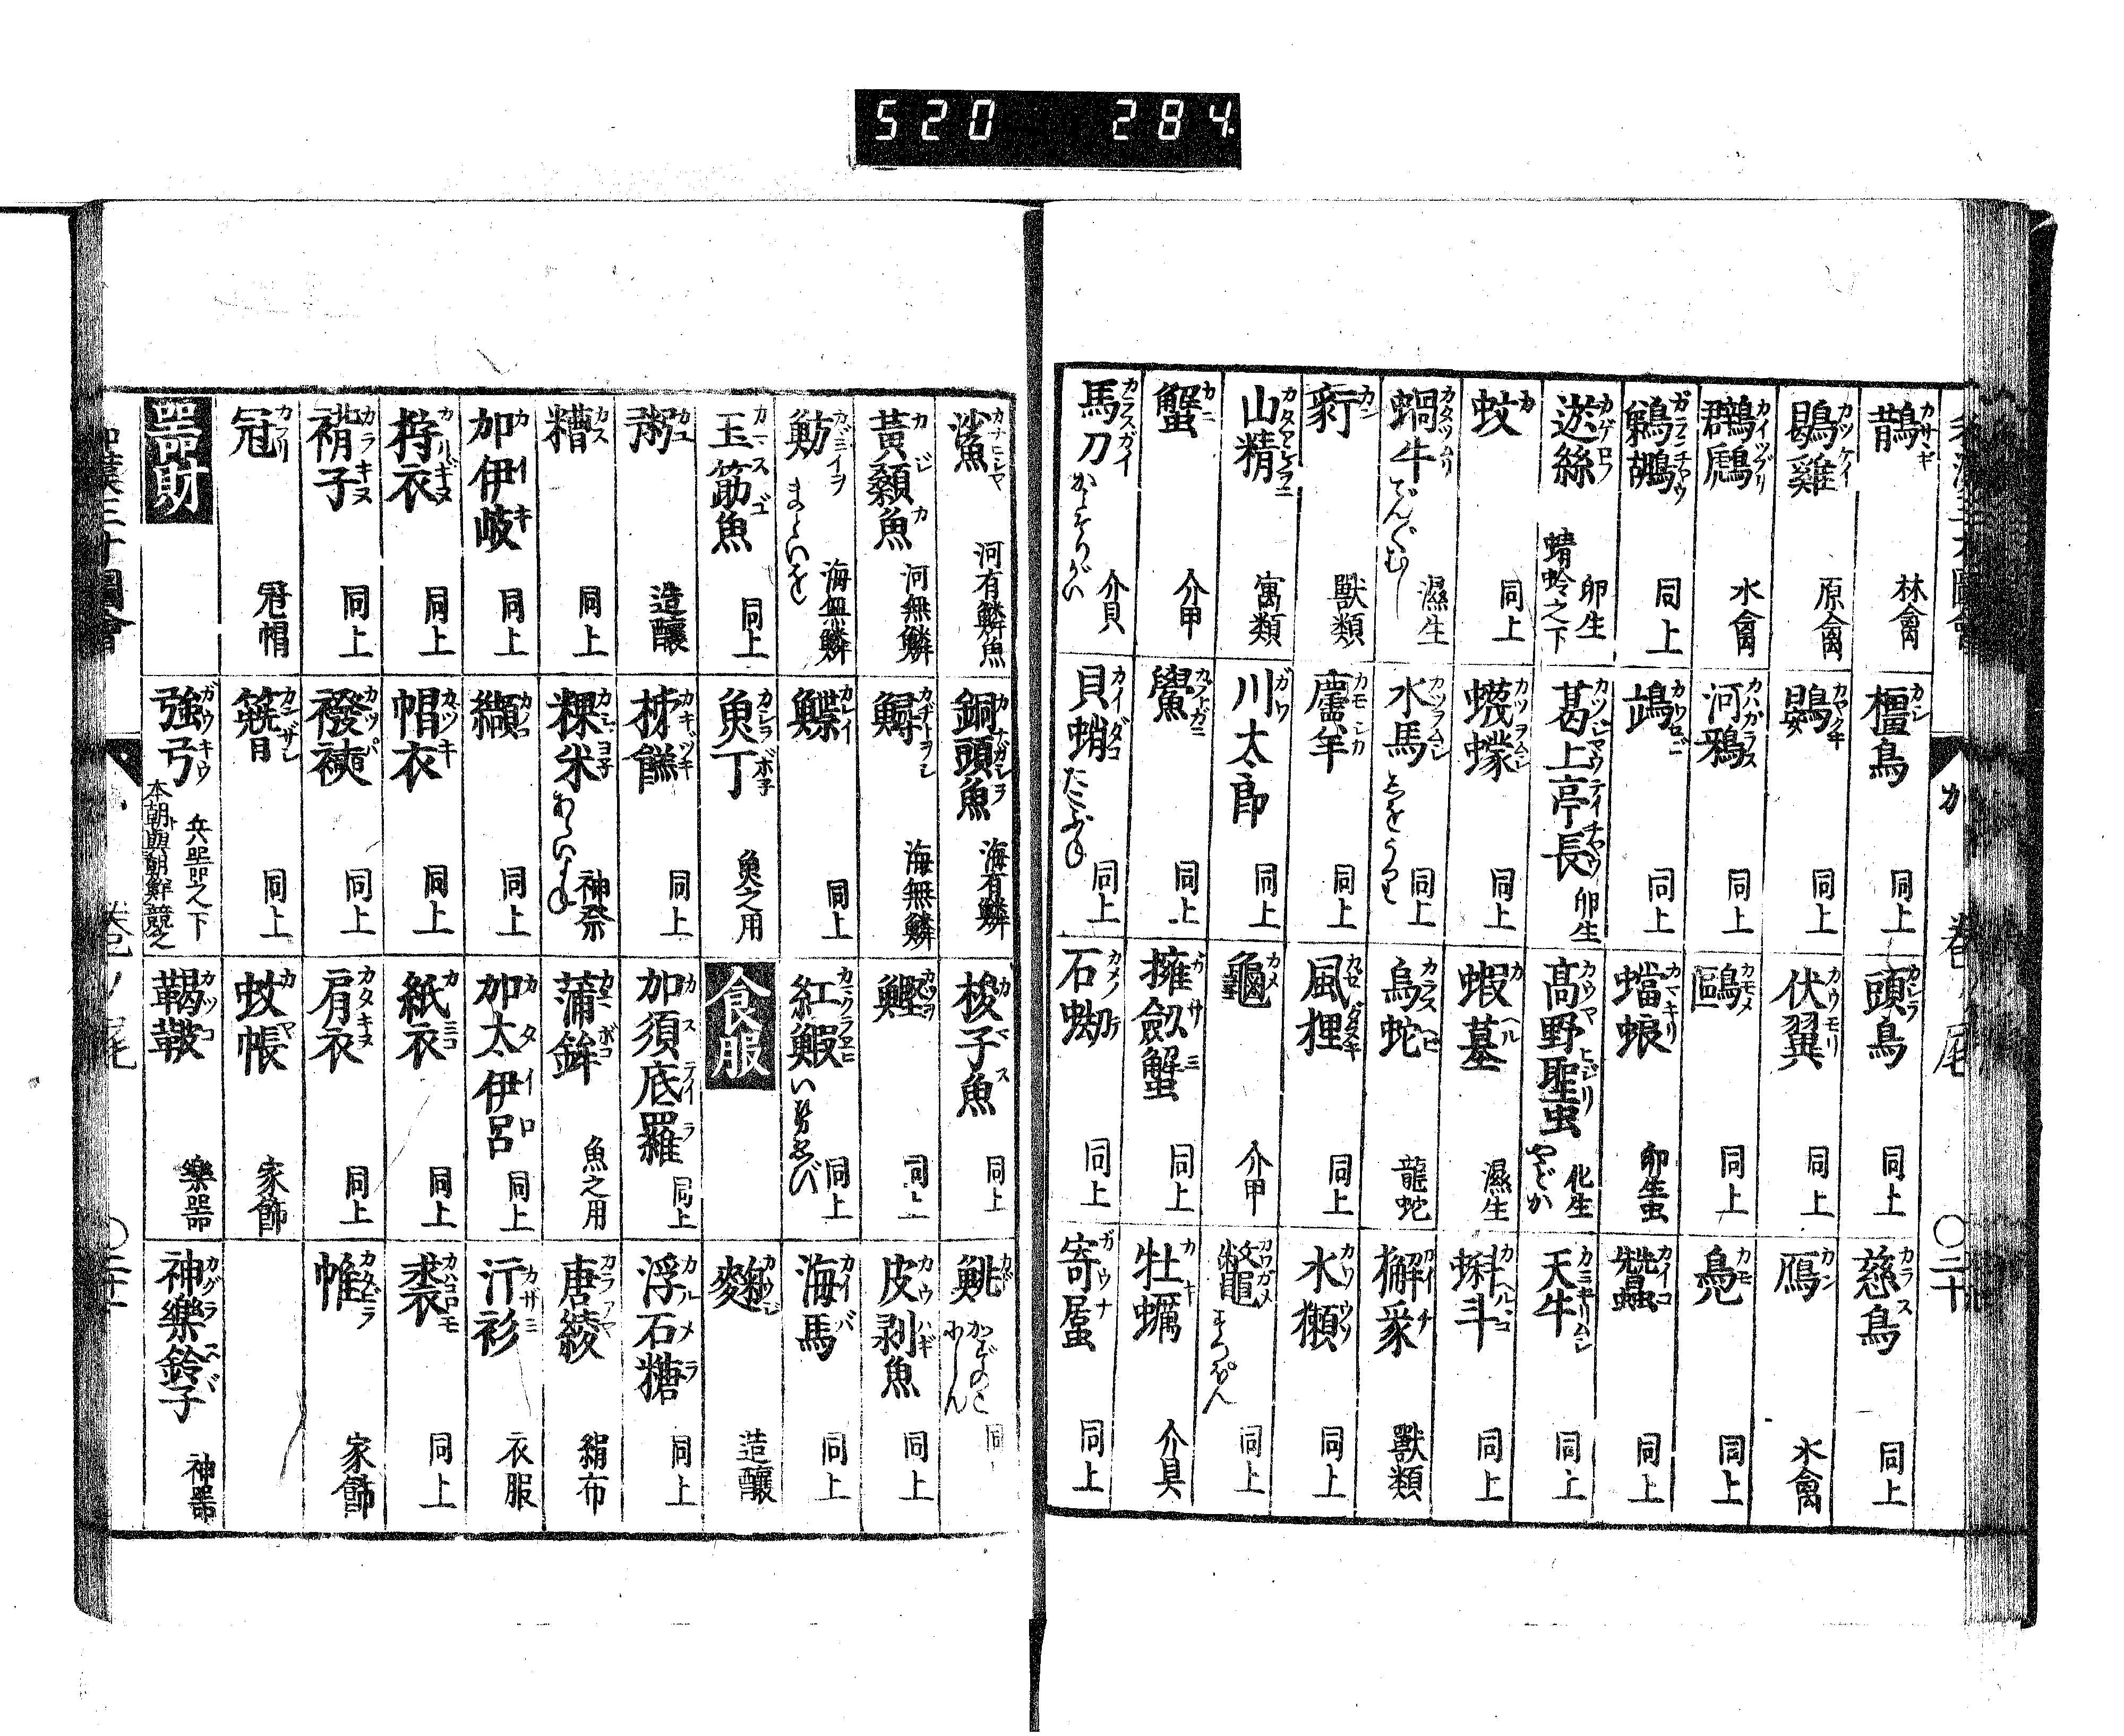 520 284
鵲 カサヽギ 林禽
橿鳥 カシ 同上
頭鳥 カシラ 同上
慈鳥 カラス 同上
鶡雞 カツケイ 原禽
鷃 カヤクキ 同上
伏翼 カウモリ 同上
鴈 カン 水禽
鸊鷉 カイツブリ 水禽
河鴉 カハガラス 同上
鷗 カモメ 同上
鳧 カモ 同上
鵜鶘 ガランチヤウ 同上
同上
蟷蜋 カマキリ 卵生虫
蠶 カイコ 同上
遊絲 カゲロフ 卵生 蜻蛉之下
葛上亭長 カツシヤウテイチヤウ 卵生
高野聖虫 カウヤヒジリ 化生 やどか
天牛 カミキリムシ 同上
蚊 カ 同上
蠛蠓 カツヲムシ 同上
蝦蟇 カヘル 濕生
蝌斗 カヘルコ 同上
蝸牛 カタツムリ でんぐむし 濕生
水馬 カツラムシ 同上
烏蛇 カラスヘビ 龍蛇
獬豸 カイチ 獸類
豻 カン 獸類
麢羊 カモシカ 同上
風狸 カゼダヌキ 同上
水獺 カワウソ 同上
山精 カタアシヲニ 寓類
川太郎 ガワ 同上
龜 カメ 介甲
カワガメ すつぽん 同上
蟹 カニ 介甲
鱟 カブトガニ 同上
擁劔蟹 ガサミ 同上
牡蠣 カキ 介貝
馬刀 カラスガイ 介貝
貝蛸 カイダコ たこぶね 同上
石蜐 カメノテ 同上
寄居虫 ガウナ 同上
か 卷ノ尾 〇二十
鯊 河有鱗魚
銅頭魚 カナガシラ 海有鱗
梭子魚 カマス 同上
かどのこ にしん 同
黃顙魚 カジカ 河無鱗
鱘 カヂトヲシ 海無鱗
鰹 カツヲ 同上
皮剥魚 カウハギ 同上
魴 海無鱗
鰈 カレイ 同上
紅鰕 カマクラヱビ いせゑび 同上
海馬 カイバ 同上
玉筯魚 カマスゴ 同上
魚丁 カシラボネ 魚之用
食服
麴 カウジ 造釀
粥 カユ 造釀
同上
加須底羅 カステイラ 同上
浮石糖 カルメラ 同上
糟 カス 同上
粿米 神祭
蒲鉾 カマボコ 魚之用
唐綾 カラアヤ 絹布
加伊岐 カイキ 同上
纐 カノコ 同上
加太伊呂 カタイロ 同上
汗衫 カザミ 衣服
狩衣 カリギヌ 同上
帽衣 カツキ 同上
紙衣 カミコ 同上
裘 カハコロモ 同上
褙子 カラキヌ 同上
同上
肩衣 カタキヌ 同上
帷 カタビラ 家飾
冠 カフリ 冠帽
カンザシ 同上
蚊帳 カヤ 家飾
器財
強弓 ガウキウ 兵器之下 本朝與朝鮮競之
羯鼓 カツコ 樂器
神樂鈴子 カグラスヾ 神器